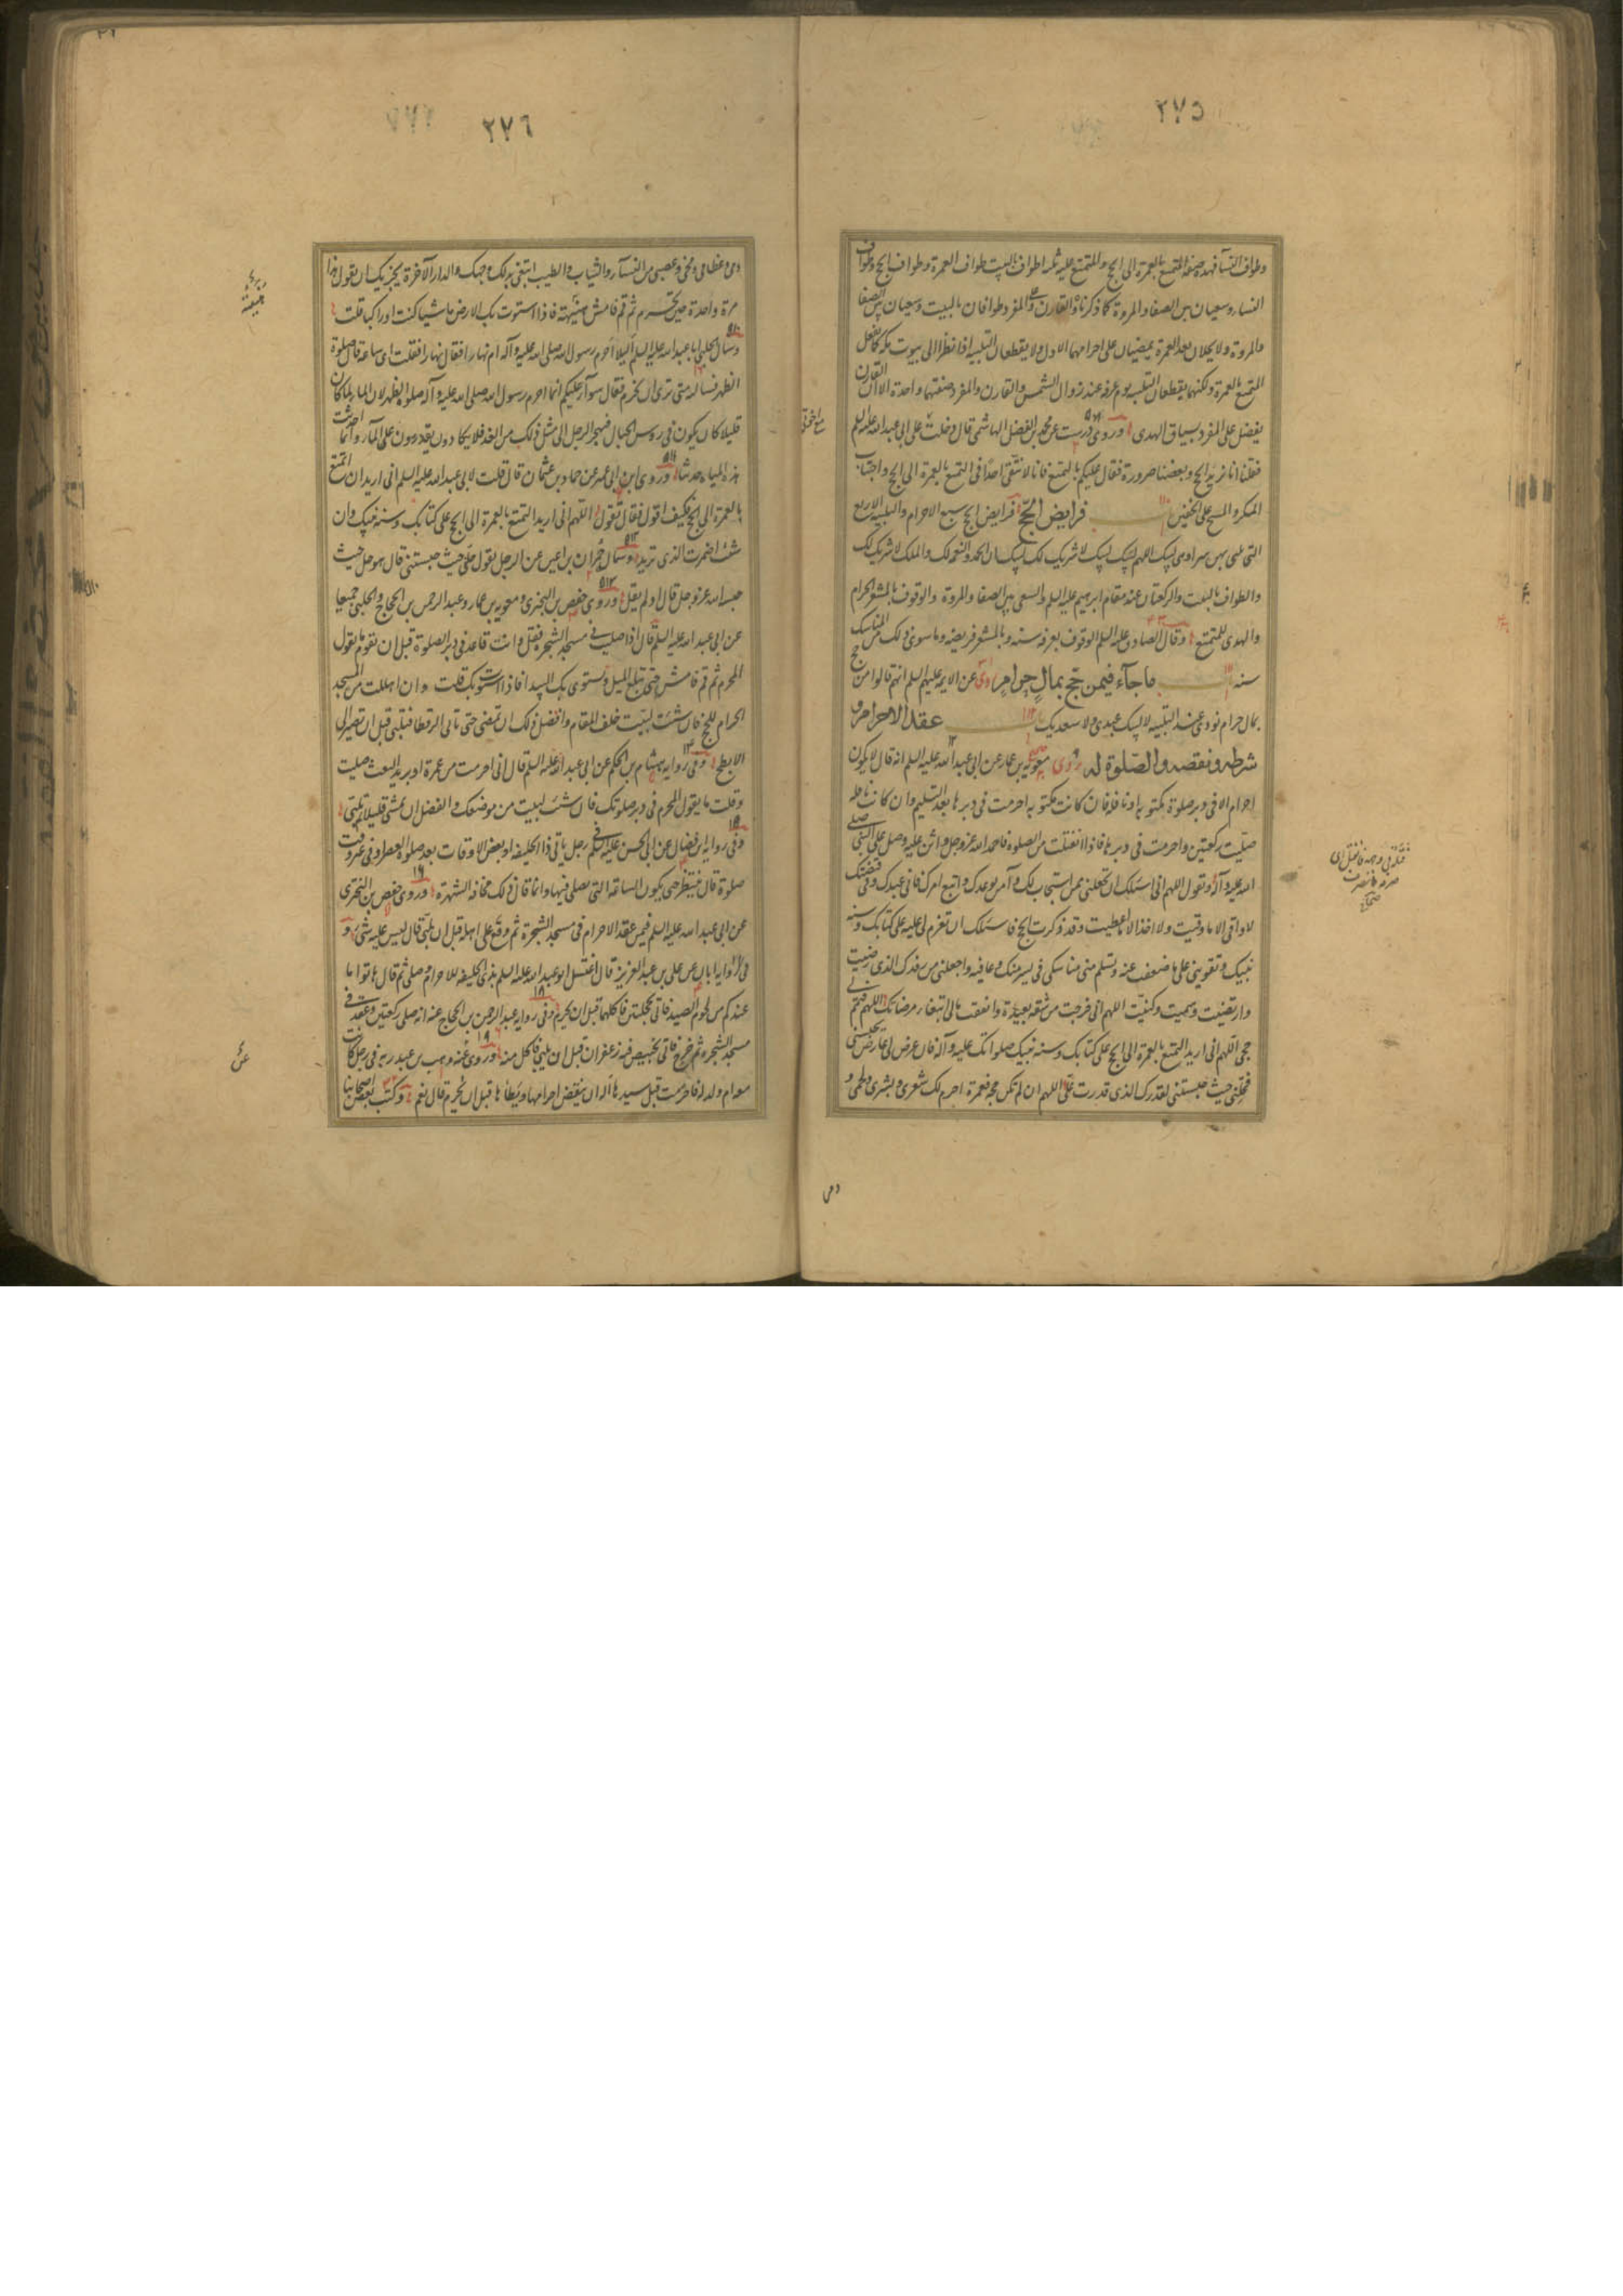 ٢٧٥
وطواف النسا فهذه صفة المتمتع بالعمرة الى الحج والمتمتع عليه ثلثه اطواف بالبيت طواف العمرة وطواف الحج وطواف
النساء وسعيان بين الصفا والمروة كما ذكرناه والقارن والمفرد طوافان بالبيت وسعيان بين الصفا
والمروة ولا يحلان بعد العمرة يمضيان على احرامهما الاول ولا يقطعان التلبيه اذا نظرا الى بيوت مكه كما يفعل
المتمتع بالعمرة ولكنهما يقطعان التلبيه يوم عرفه عند زوال الشمس والقارن والمفرد صفتهما واحدة الا ان القارن
يفضل على المفرد بسياق الهدى وروى درست عن محمد بن الفضل الهاشمى قال دخلت على ابى عبد الله عليه السلم
فقلنا انا نريد الحج وبعضنا صرورة فقال عليكم بالتمتع فانا لا نتقى احدا فى التمتع بالعمرة الى الحج واجتناب
المسكر والمسح على الخفين باب فرايض الحج فرايض الحج سبع الاحرام والتلبيه الاربع
التى يلبى بهن سرا وهى لبيك اللهم لبيك لبيك لا شريك لك لبيك ان الحمد والنعمه لك والملك لا شريك لك
والطواف بالبيت والركعتان عند مقام ابرهيم عليه السلم والسعى بين الصفا والمروة والوقوف بالمشعر الحرام
والهدى للمتمتع وقال الصادق عليه السلم الوقوف بعرفه سنه وبالمشعر فريضه وما سوى ذلك من المناسك
سنه باب ما جآء فيمن حج بمال حرام روى عن الايمه عليهم السلم انهم قالوا من حج
بمال حرام نودى عند التلبيه لا لبيك عبدى ولا سعديك باب عقد الاحرام و
شرطه ونقضه والصلوة له روى معويه بن عمار عن ابى عبد الله عليه السلم انه قال لا يكون
احرام الا فى دبر صلوة مكتوبه او نافله فان كانت مكتوبه احرمت فى دبرها بعد التسليم وان كانت نافله
صليت ركعتين واحرمت فى دبرها فاذا انفتلت من الصلوه فاحمد الله عز وجل واثن عليه وصل على النبى صلى
الله عليه وآله وتقول اللهم انى اسئلك ان تجعلنى ممن استجاب لك وآمن بوعدك واتبع امرك فانى عبدك وفى قبضتك
لا اوقى الا ما وقيت ولا اخذ الا ما اعطيت وقد ذكرت الحج فاسئلك ان تعزم لى عليه على كتابك وسنه
نبيك وتقوينى على ما ضعفت عنه وتسلم منى مناسكى فى يسر منك وعافيه واجعلنى من وفدك الذى رضيت
وارتضيت وسميت وكتبت اللهم انى خرجت من شقه بعيدة وانفقت مالى ابتغاء مرضاتك اللهم فتمم لى
حجى اللهم انى اريد التمتع بالعمرة الى الحج على كتابك وسنه نبيك صلواتك عليه وآله فان عرض لى عارض يحبسنى
فحلنى حيث حبستنى لقدرك الذى قدرت على اللهم ان لم تكن حجه فعمرة احرم لك شعرى وبشرى ولحمى و
دمى
٢٧٦
دمى وعظامى ومخى وعصبى من النسآء والثياب والطيب ابتغى بذلك وجهك والدار الآخرة يجزيك ان تقول هذا
مرة واحدة حين تحرم ثم قم فامش هنيهة فاذا استوت بك الارض ماشيا كنت او راكبا فلب
وسال الحلبى ابا عبد الله عليه السلم اليلا احرم رسول الله صلى الله عليه وآله ام نهارا فقال نهارا فقلت اى ساعه قال صلوة
الظهر فسالته متى ترى ان نحرم فقال سوآء عليكم انما احرم رسول الله صلى الله عليه وآله صلوة الظهر لان المآء كان
قليلا كان يكون فى روس الجبال فيهجر الرجل الى مثل ذلك من الغد فلا يكادون يقدرون على المآء وانما احدثت
هذه المياه حديثا وروى ابن ابى عمير عن حماد بن عثمان قال قلت لابى عبد الله عليه السلم انى اريد ان اتمتع
بالعمرة الى الحج فكيف اقول فقال تقول اللهم انى اريد التمتع بالعمرة الى الحج على كتابك وسنه نبيك وان
شئت اضمرت الذى تريد وسال حمران بن اعين عن الرجل يقول حلنى حيث حبستنى قال هو حل حيث
حبسه الله عز وجل قال او لم يقل وروى حفص بن البخترى ومعويه بن عمار وعبد الرحمن بن الحجاج والحلبى جميعا
عن ابى عبد الله عليه السلم قال اذا صليت فى مسجد الشجره فقل وانت قاعد فى دبر الصلوة قبل ان تقوم ما يقول
المحرم ثم قم فامش حتى تبلغ الميل وتستوى بك البيدا فاذا استوت بك فلب وان اهللت من المسجد
الحرام للحج فان شئت لبيت خلف المقام وافضل ذلك ان تمضى حتى تاتى الرقطا فتلبى قبل ان تصير الى
الابطح وفى روايه هشام بن الحكم عن ابى عبد الله عليه السلم قال ان احرمت من غمرة او بريد البعث صليت
وقلت ما يقول المحرم فى دبر صلوتك فان شئت لبيت من موضعك والفضل ان تمشى قليلا ثم تلبى
وفى روايه ابن فضال عن ابى الحسن عليه السلم فى رجل ياتى ذا الحليفه او بعض الاوقات بعد صلوة العصر او فى غير وقت
صلوة قال ينتظر حتى يكون الساعه التى يصلى فيها وانما قال ذلك مخافه الشهرة وروى حفص بن البخترى
عن ابى عبد الله عليه السلم فيمن عقد الاحرام فى مسجد الشجرة ثم وقع على اهله قبل ان يلبى قال ليس عليه شئ و
فى روايه ابان عن على بن عبد العزيز قال اغتسل ابو عبد الله عليه السلم بذى الحليفه للاحرام وصلى ثم قال هاتوا ما
عندكم من لحوم الصيد فاتى بحجلتين فاكلهما قبل ان يحرم وفى روايه عبد الرحمن بن الحجاج عنه انه صلى ركعتين وعقد فى
مسجد الشجره ثم خرج فاتى بخبيص فيه زعفران قبل ان يلبى فاكل منه وروى عنه وهب بن عبد ربه فى رجل كانت
معه ام ولد له فاحرمت قبل سيدها اله ان ينقض احرامها ويطاها قبل ان يحرم قال نعم وكتب بعض اصحابنا